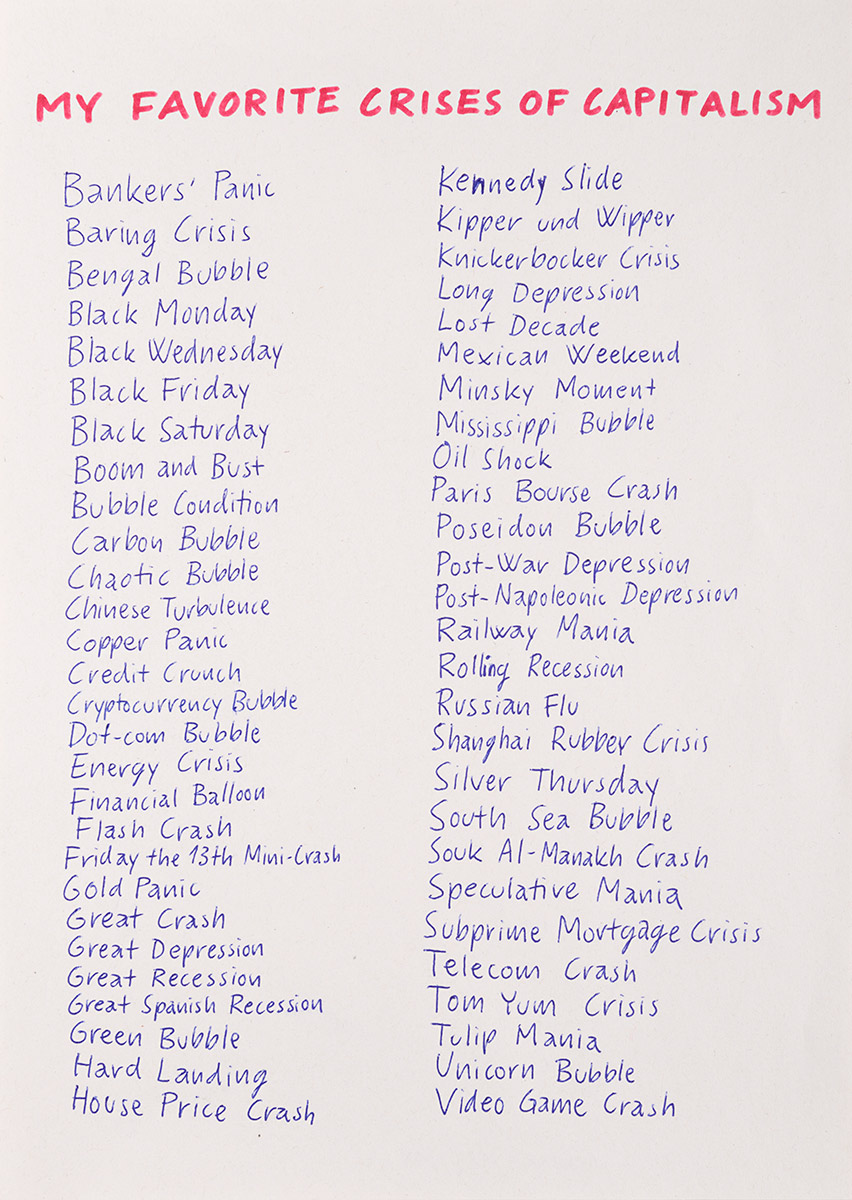 MY FAVORITE CRISES OF CAPITALISM
Bankers' Panic
Baring Crisis
Bengal Bubble
Black Monday
Black Wednesday
Black Friday
Black Saturday
Boom and Bust
Bubble Condition
Carbon Bubble
Chaotic Bubble
Chinese Turbulence
Copper Panic
Credit Crunch
Cryptocurrency Bubble
Dot-com Bubble
Energy Crisis
Financial Balloon
Flash Crash
Friday the 13th Mini-Crash
Gold Panic
Great Crash
Great Depression
Great Recession
Great Spanish Recession
Green Bubble
Hard Landing
House Price Crash
Kennedy Slide
Kipper und Wipper
Knickerbocker Crisis
Long Depression
Lost Decade
Mexican Weekend
Minsky Moment
Mississippi Bubble
Oil Shock
Paris Bourse Crash
Poseidon Bubble
Post-War Depression
Post-Napoleonic Depression
Railway Mania
Rolling Recession
Russian Flu
Shanghai Rubber Crisis
Silver Thursday
South Sea Bubble
Souk Al-Manakh Crash
Speculative Mania
Subprime Mortgage Crisis
Telecom Crash
Tom Yum Crisis
Tulip Mania
Unicorn Bubble
Video Game Crash